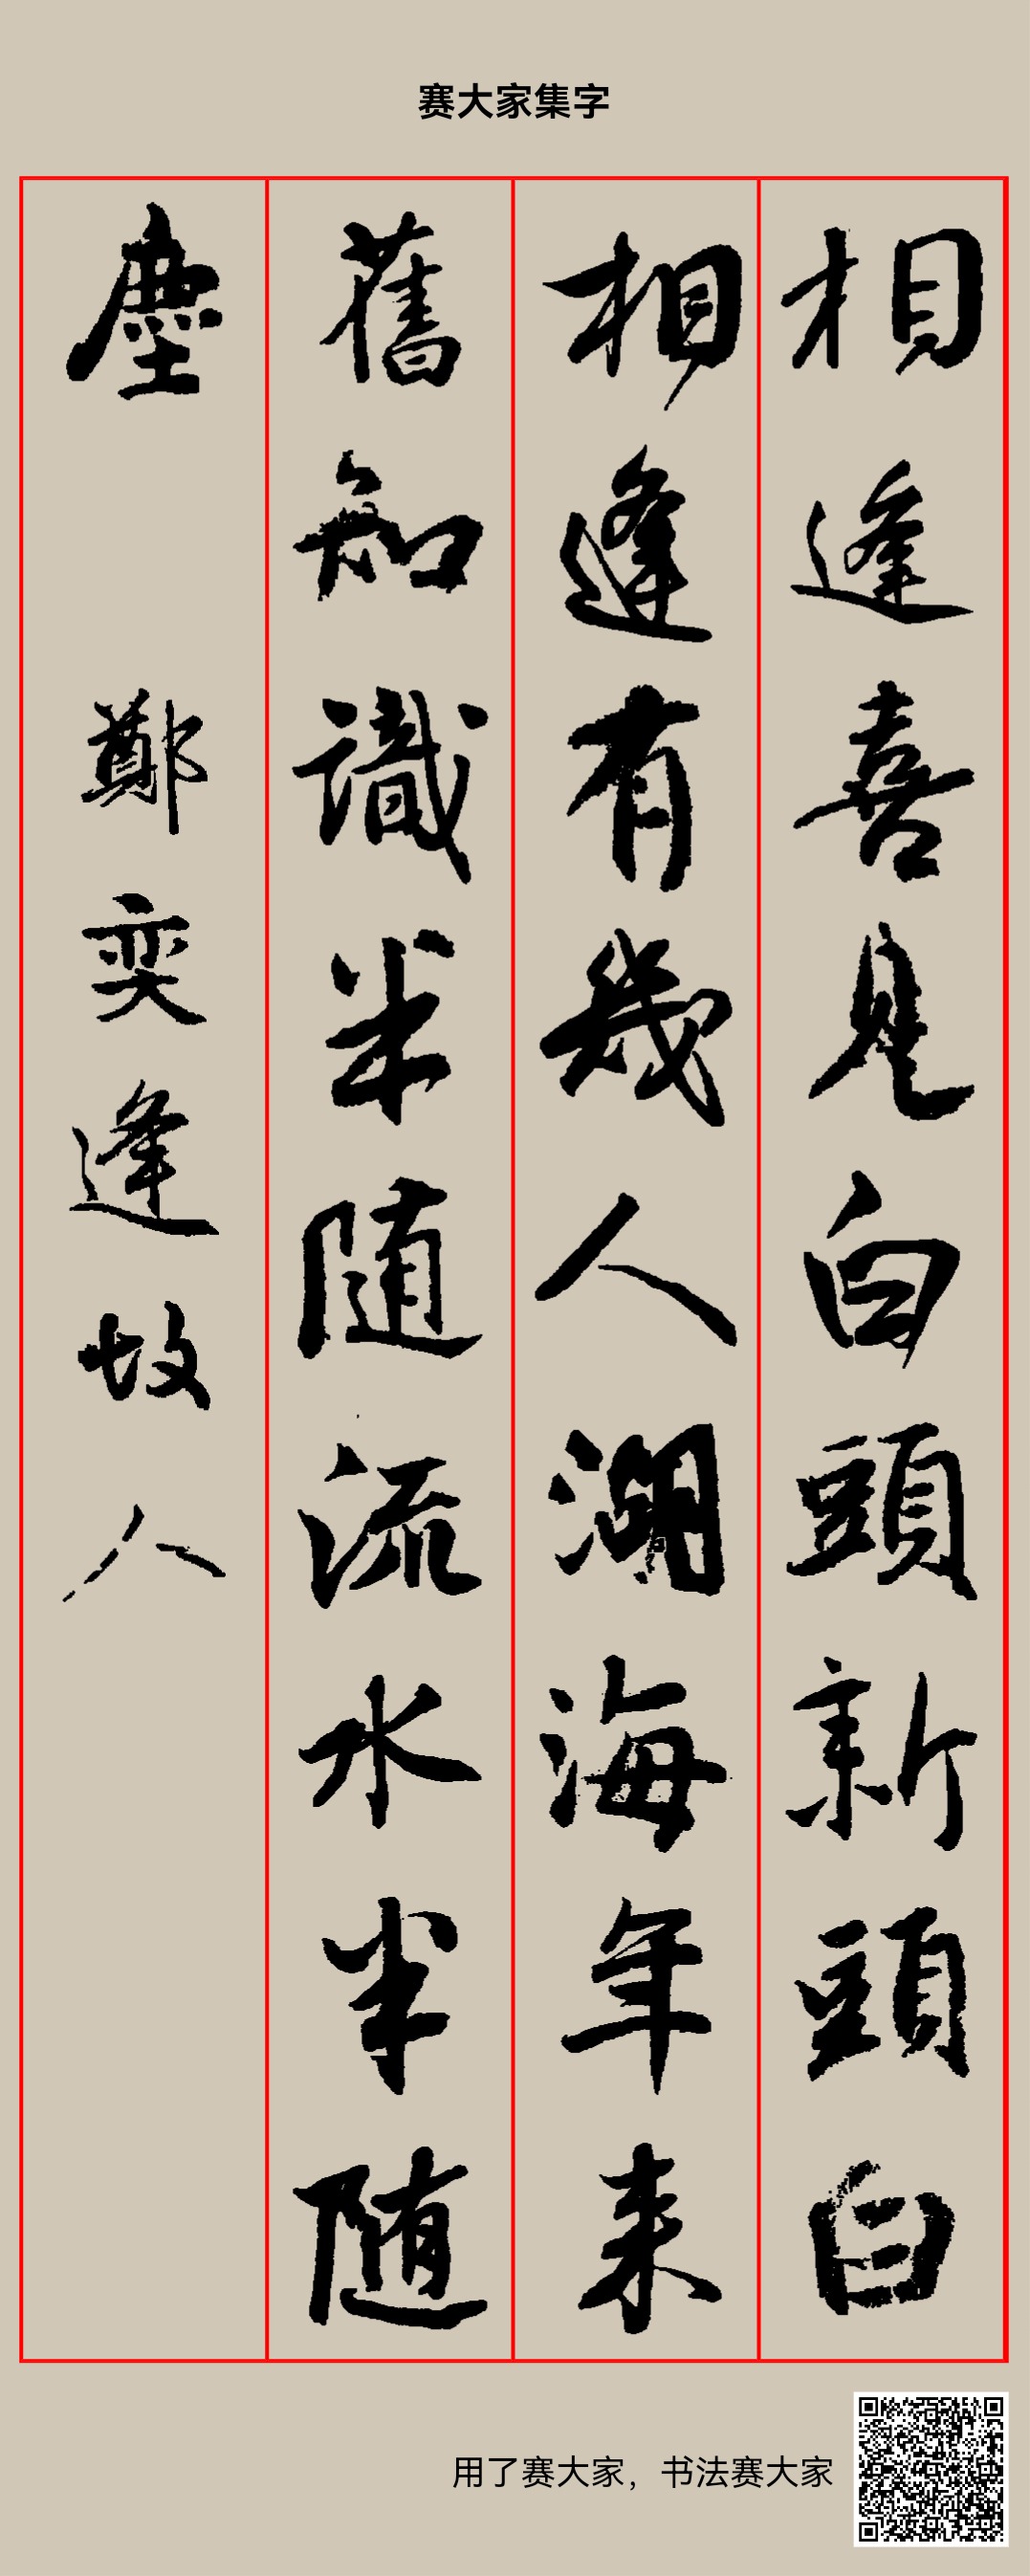 赛大家集字
相逢喜見白頭新頭白
相逢有幾人湖海年来
舊知識半随流水半随
塵 鄭奕逢故人
用了赛大家，书法赛大家